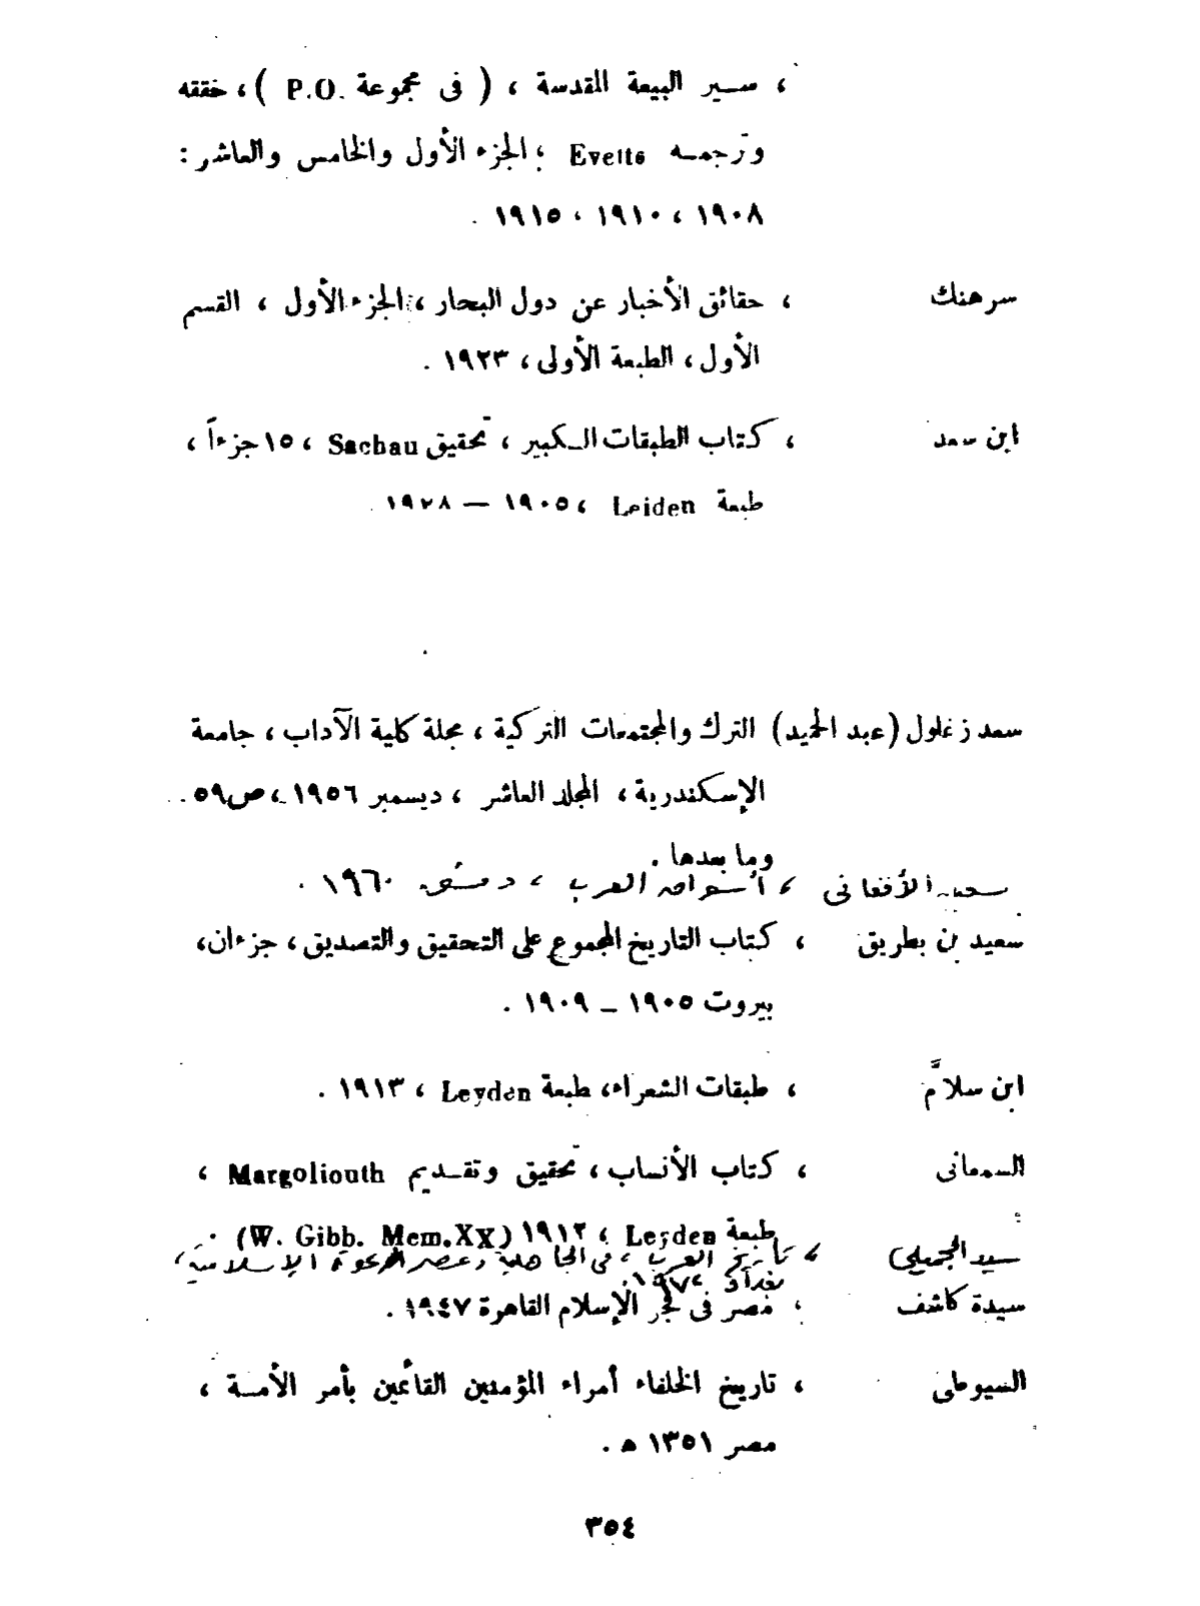 ، سـير البيعة المقدسة ، ( فى مجموعة P.O. ) ، حققه
وترجمه Evetts ؛ الجزء الأول والخامس والعاشر :
١٩٠٨ ، ١٩١٠ ، ١٩١٥ .
سرهنك ، حقائق الأخبار عن دول البحار ، الجزء الأول ، القسم
الأول ، الطبعة الأولى ، ١٩٢٣ .
ابن سعد ، كتاب الطبقات الكبير ، تحقيق Sachau ، ١٥ جزءاً ،
طبعة Leiden ، ١٩٠٥ — ١٩٢٨ .
سعد زغلول (عبد الحميد) الترك والمجتمعات التركية ، مجلة كلية الآداب ، جامعة
الإسكندرية ، المجلد العاشر ، ديسمبر ١٩٥٦ ، ص ٥٩
وما بعدها .
سعيد الأفغانى ، أسواق العرب ، دمشق ١٩٦٠ .
سعيد بن بطريق ، كتاب التاريخ المجموع على التحقيق والتصديق ، جزءان ،
بيروت ١٩٠٥ – ١٩٠٩ .
ابن سلاَّم ، طبقات الشعراء ، طبعة Leyden ، ١٩١٣ .
السمعانى ، كتاب الأنساب ، تحقيق وتقـديم Margoliouth ،
طبعة Leyden ، ١٩١٢ (W. Gibb. Mem. XX) .
سيد الجميلي ، تاريخ العرب ، فى الجاهلية وعصر الدعوة الإسلامية ،
بغداد ١٩٧٢ .
سيدة كاشف ، مصر فى فجر الإسلام القاهرة ١٩٤٧ .
السيوطى ، تاريخ الخلفاء أمراء المؤمنين القائمين بأمر الأمـة ،
مصر ١٣٥١ ه .
٣٥٤